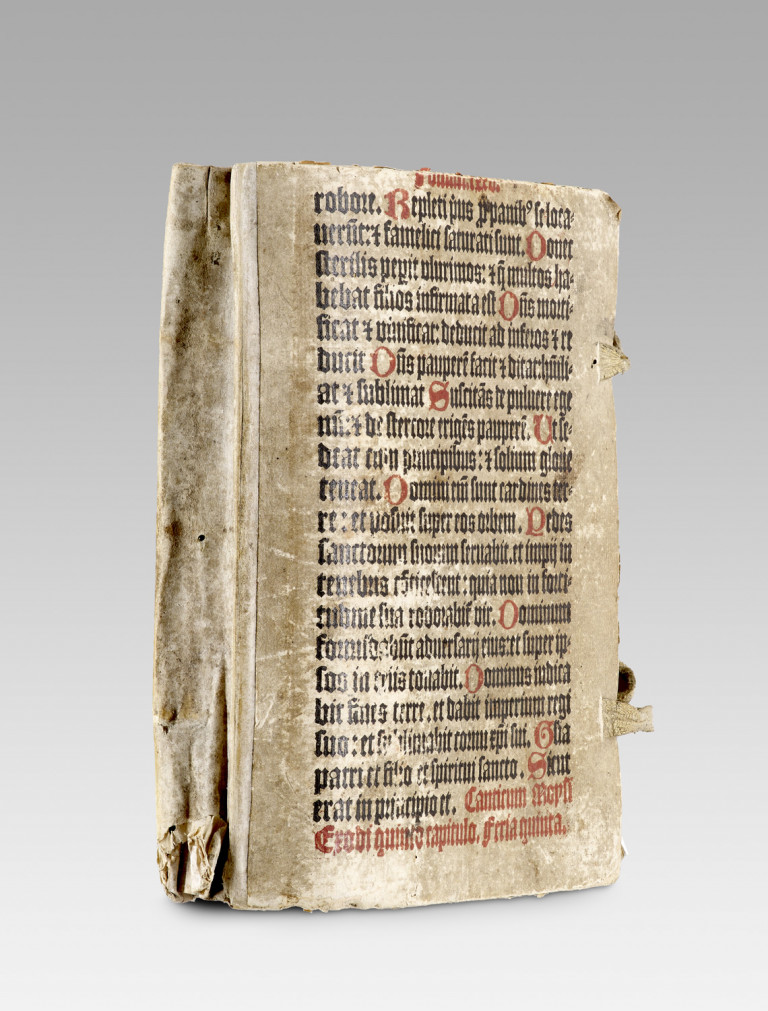 robore. Repleti pͥus ꝓ panibꝰ se loca⸗
uerūt: ⁊ famelici saturati sunt. Donec
sterilis peperit plurimos: ⁊ q̄ multos ha⸗
bebat filios infirmata est Dn̄s morti⸗
ficat ⁊ viuificat: deducit ad inferos ⁊ re
ducit Dn̄s pauperē facit ⁊ ditat: hūili⸗
at ⁊ sublimat Suscitās de puluere ege
nū: ⁊ de stercore erigēs pauperē. Ut se⸗
deat cum principibus: ⁊ solium glorie
teneat. Domini em̄ sunt cardines ter⸗
re: et posuit super eos orbem. Pedes
sanctorum suorum seruabit. et impij in
tenebris cōticescent: quia non in forti⸗
tudine sua roborabit᷑ vir. Dominum
formidabūt aduersarij eius: et super ip⸗
sos in celis tonabit. Dominus iudica
bit fines terre. et dabit imperium regi
suo: et sublimabit cornu xp̄i sui. Glia
patri et filio et spiritui sancto. Sicut
erat in principio et. Canticum Moysi
Exodi quinto capitulo. Feria quinta.